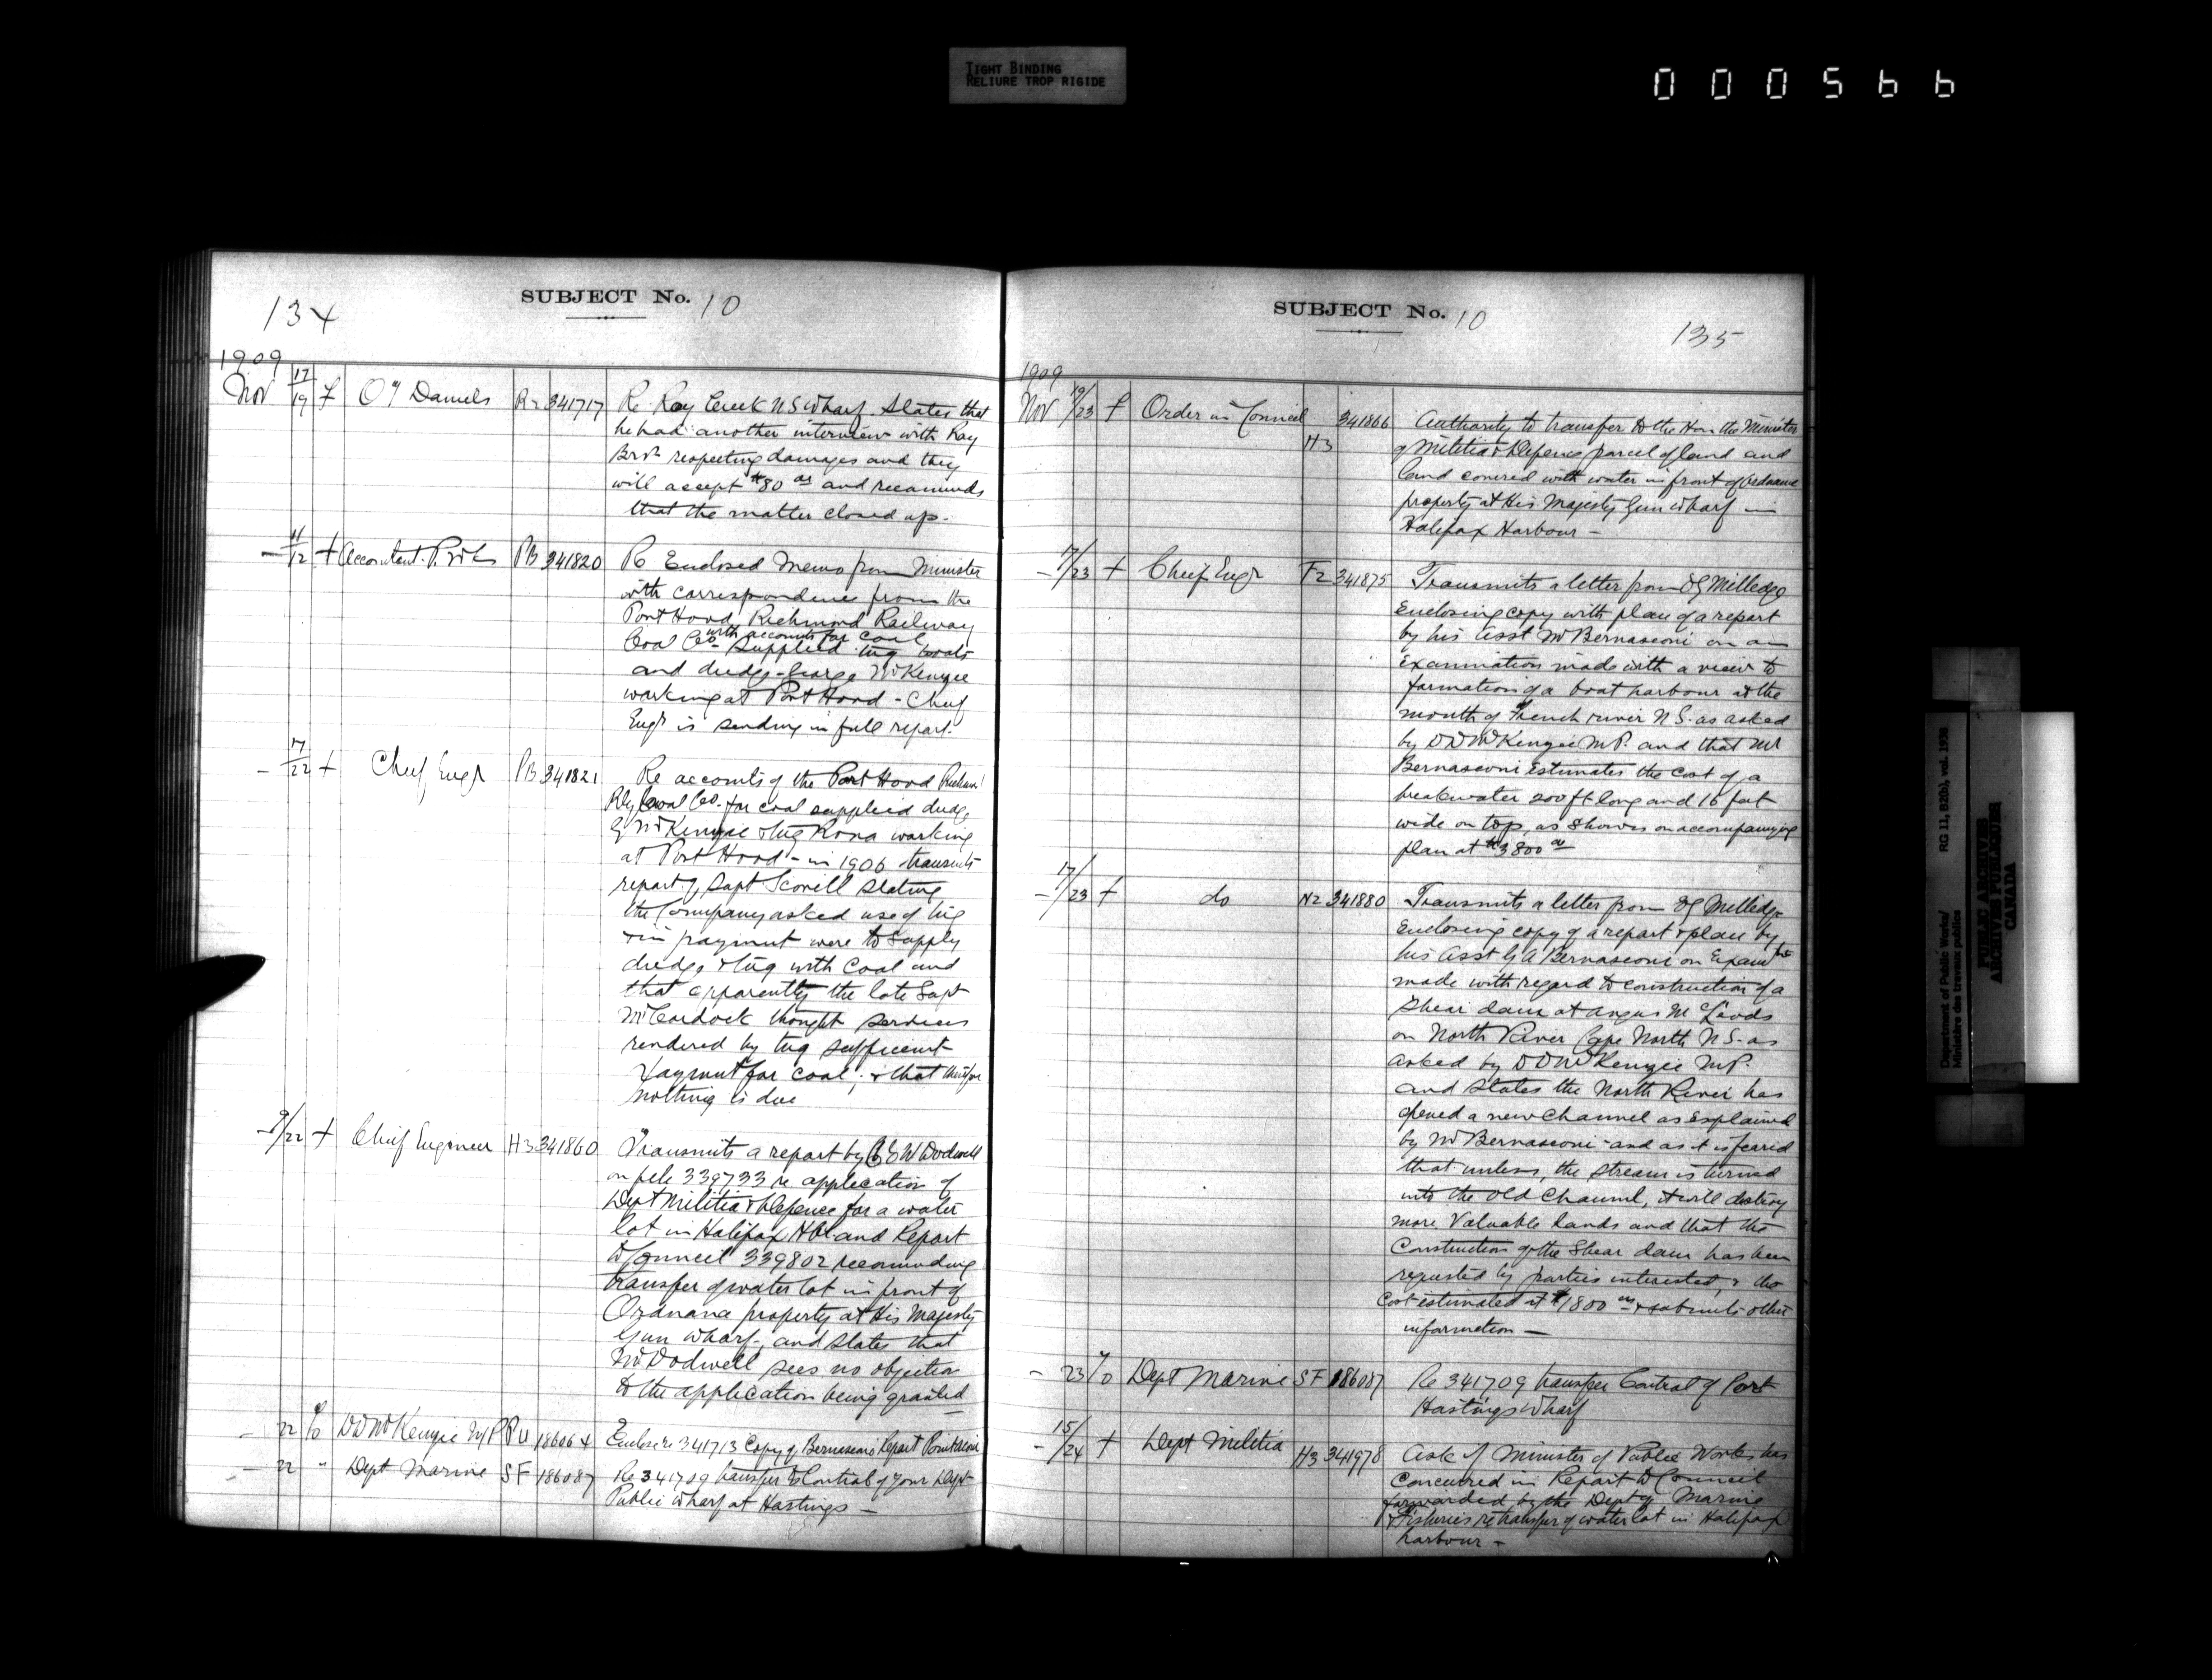 TIGHT BINDING
RELIURE TROP RIGIDE
000566
134
SUBJECT No. 10
1909
Nov 17/19 f O'Daniels R2 341717 Re Ray Creek N S Wharf. States that
he had another interview with Ray
Bros respecting damages and they
will accept $80 00 and recommends
that the matter closed up.
- 11/12 + Accountant P. Wks PB 341820 Re Enclosed Memo from Minister
with correspondence from the
Port Hood Richmond Railway
Coal Co with accounts for coal
supplied tug boats
and dredge George McKenzie
working at Port Hood - Chief
Engr is sending in full report.
- 17/22 + Chief Engr PB 341821 Re accounts of the Port Hood Richmd
Rly Coal Co. for coal supplied dredge
G McKenzie & tug Rona working
at Port Hood - in 1906 transmits
report of Supt Scovell stating
the Company asked use of tug
& in payment were to supply
dredge & tug with coal and
that apparently the late Supt
McCordock thought services
rendered by tug sufficient
payment for coal; & that therefor
nothing is due
- 9/22 + Chief Engineer H3 341860 Transmits a report by C E W Dodwell
on file 339733 re application of
Dept Militia & Defence for a water
lot in Halifax Hbr and Report
to Council 339802 recommending
transfer of water lot in front of
Ordnance property at His Majesty
Gun Wharf, and states that
Mr Dodwell sees no objection
to the application being granted
- 22 % D D McKenzie M P PU 186064 Enclose re 341713 Copy of Bernasconi Report
- 22 " Dept Marine SF 186087 Re 341709 transfer to Control of your Dept
Public Wharf at Hastings -
SUBJECT No. 10
135
1909
Nov 19/23 f Order in Council H3 341866 Authority to transfer to the Hon the Minister
of Militia & Defence parcel of land and
land covered with water in front of Ordnance
property at His Majesty Gun Wharf in
Halifax Harbour -
- 17/23 + Chief Engr F2 341875 Transmits a letter from J G Milledge
Enclosing copy with plan of a report
by his Asst Mr Bernasconi on an
Examination made with a view to
formation of a boat harbour at the
mouth of French river N S. as asked
by D D McKenzie M P. and that Mr
Bernasconi Estimates the cost of a
breakwater 200 ft long and 16 feet
wide on top, as shown on accompanying
plan at $3800 00
- 17/23 + do N2 341880 Transmits a letter from J G Milledge
Enclosing copy of a report & plan by
his Asst G A Bernasconi on Examtn
made with regard to construction of a
Shear dam at Angus McLeods
on North River Cape North N S. as
asked by D D McKenzie M P.
and states the North River has
opened a new channel as Explained
by Mr Bernasconi - and as it is feared
that unless, the stream is turned
into the old channel, it will destroy
more Valuable lands and that the
Construction of the Shear dam has been
requested by parties interested, & the
Cost estimated at $1800 00 & submits other
information -
- 23 % Dept Marine SF 186087 Re 341709 transfer Control of Port
Hastings Wharf
- 15/24 + Dept Militia H3 341978 Ask if Minister of Public Works has
Concurred in Report to Council
forwarded by the Dept of Marine
& Fisheries re transfer of water lot in Halifax
harbour -
Department of Public Works/
Ministère des travaux publics
RG 11, B2(b), vol. 1938
PUBLIC ARCHIVES
ARCHIVES PUBLIQUES
CANADA